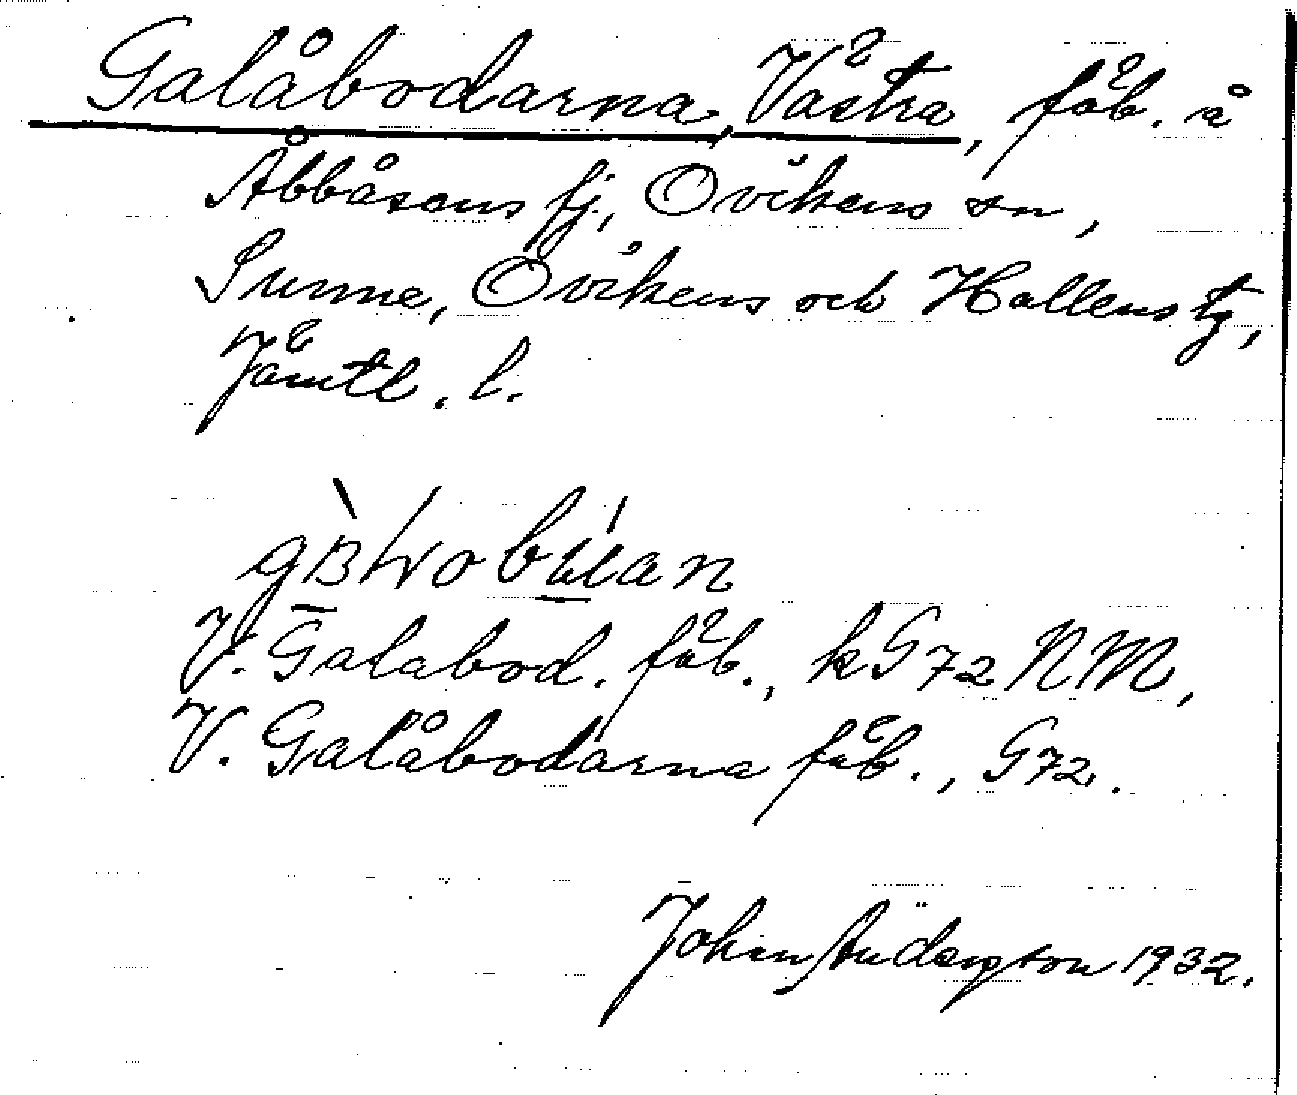 Galåbodarna, Västra, fäb. å
Åbbåsens fj., Ovikens sn,
Sunne, Ovikens och Hallens tg,
Jämtl. l.
V. Galabod. fäb., kG72 NM,
V. Galåbodarna fäb., G72.
Johan Anderson 1932.